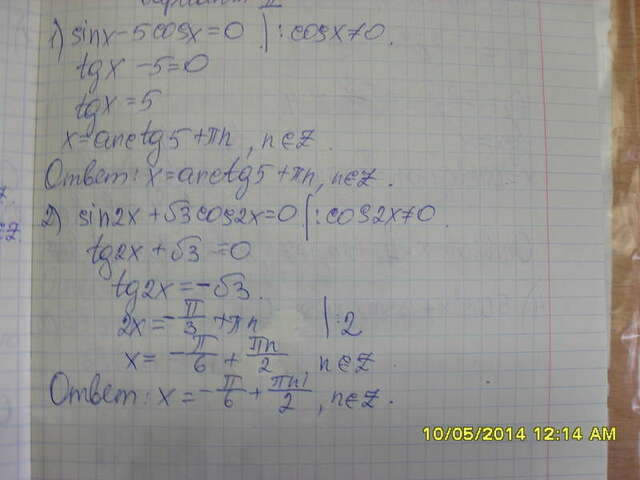 вариант II
1) sinx-5cosx=0 |:cosx≠0.
tgx-5=0
tgx=5
x=arctg5+πn, n∈Z.
Ответ: x=arctg5+πn, n∈Z.
2) sin2x+√3cos2x=0 |:cos2x≠0.
tg2x+√3=0
tg2x=-√3.
2x=-π/3+πn |:2
x=-π/6+πn/2, n∈Z
Ответ: x=-π/6+πn/2, n∈Z.
10/05/2014 12:14 AM